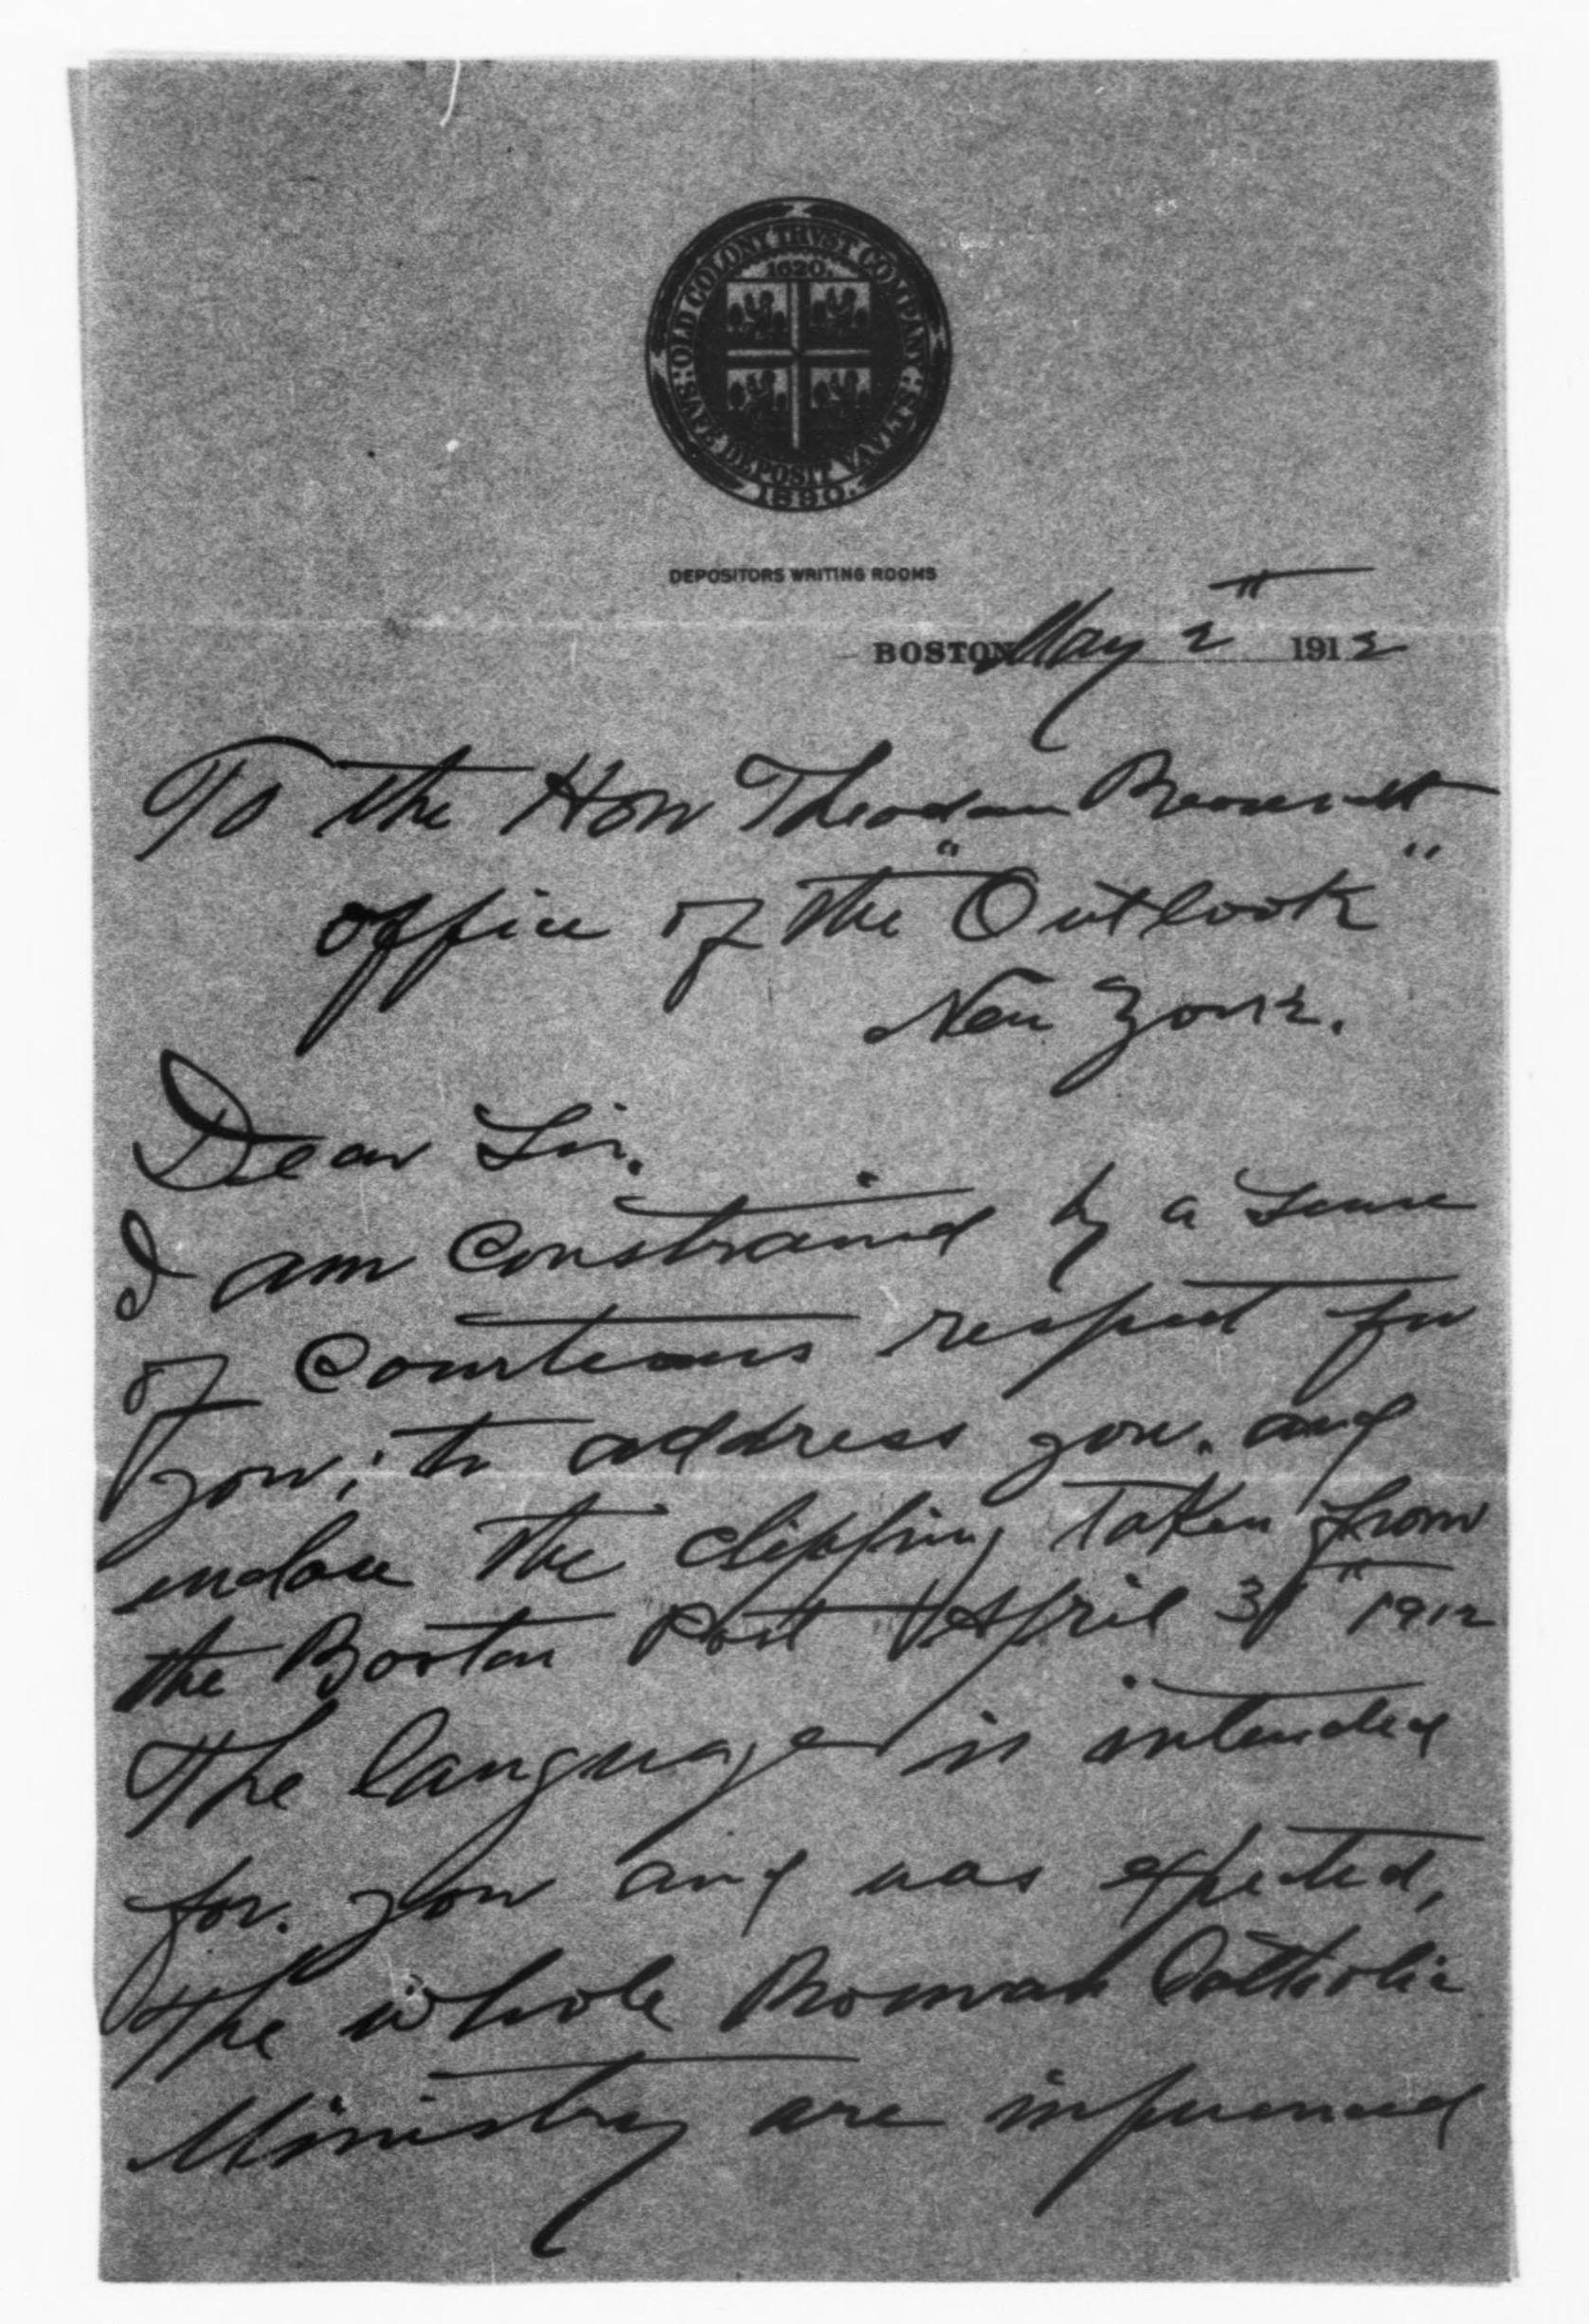 OLD COLONY TRVST COMPANY
1620.
SAFE DEPOSIT VAVLTS
1890.
DEPOSITORS WRITING ROOMS
BOSTON May 2" 1912
To the Hon Theodore Roosevelt
office of the "Outlook"
New York.
Dear Sir.
I am constrained by a sense
of Courteous respect for
you; to address you. and
enclose the clipping taken from
the Boston Post April 31" 1912
The language is intended
for. you and was expected,
The whole Roman Catholic
Ministry are influenced